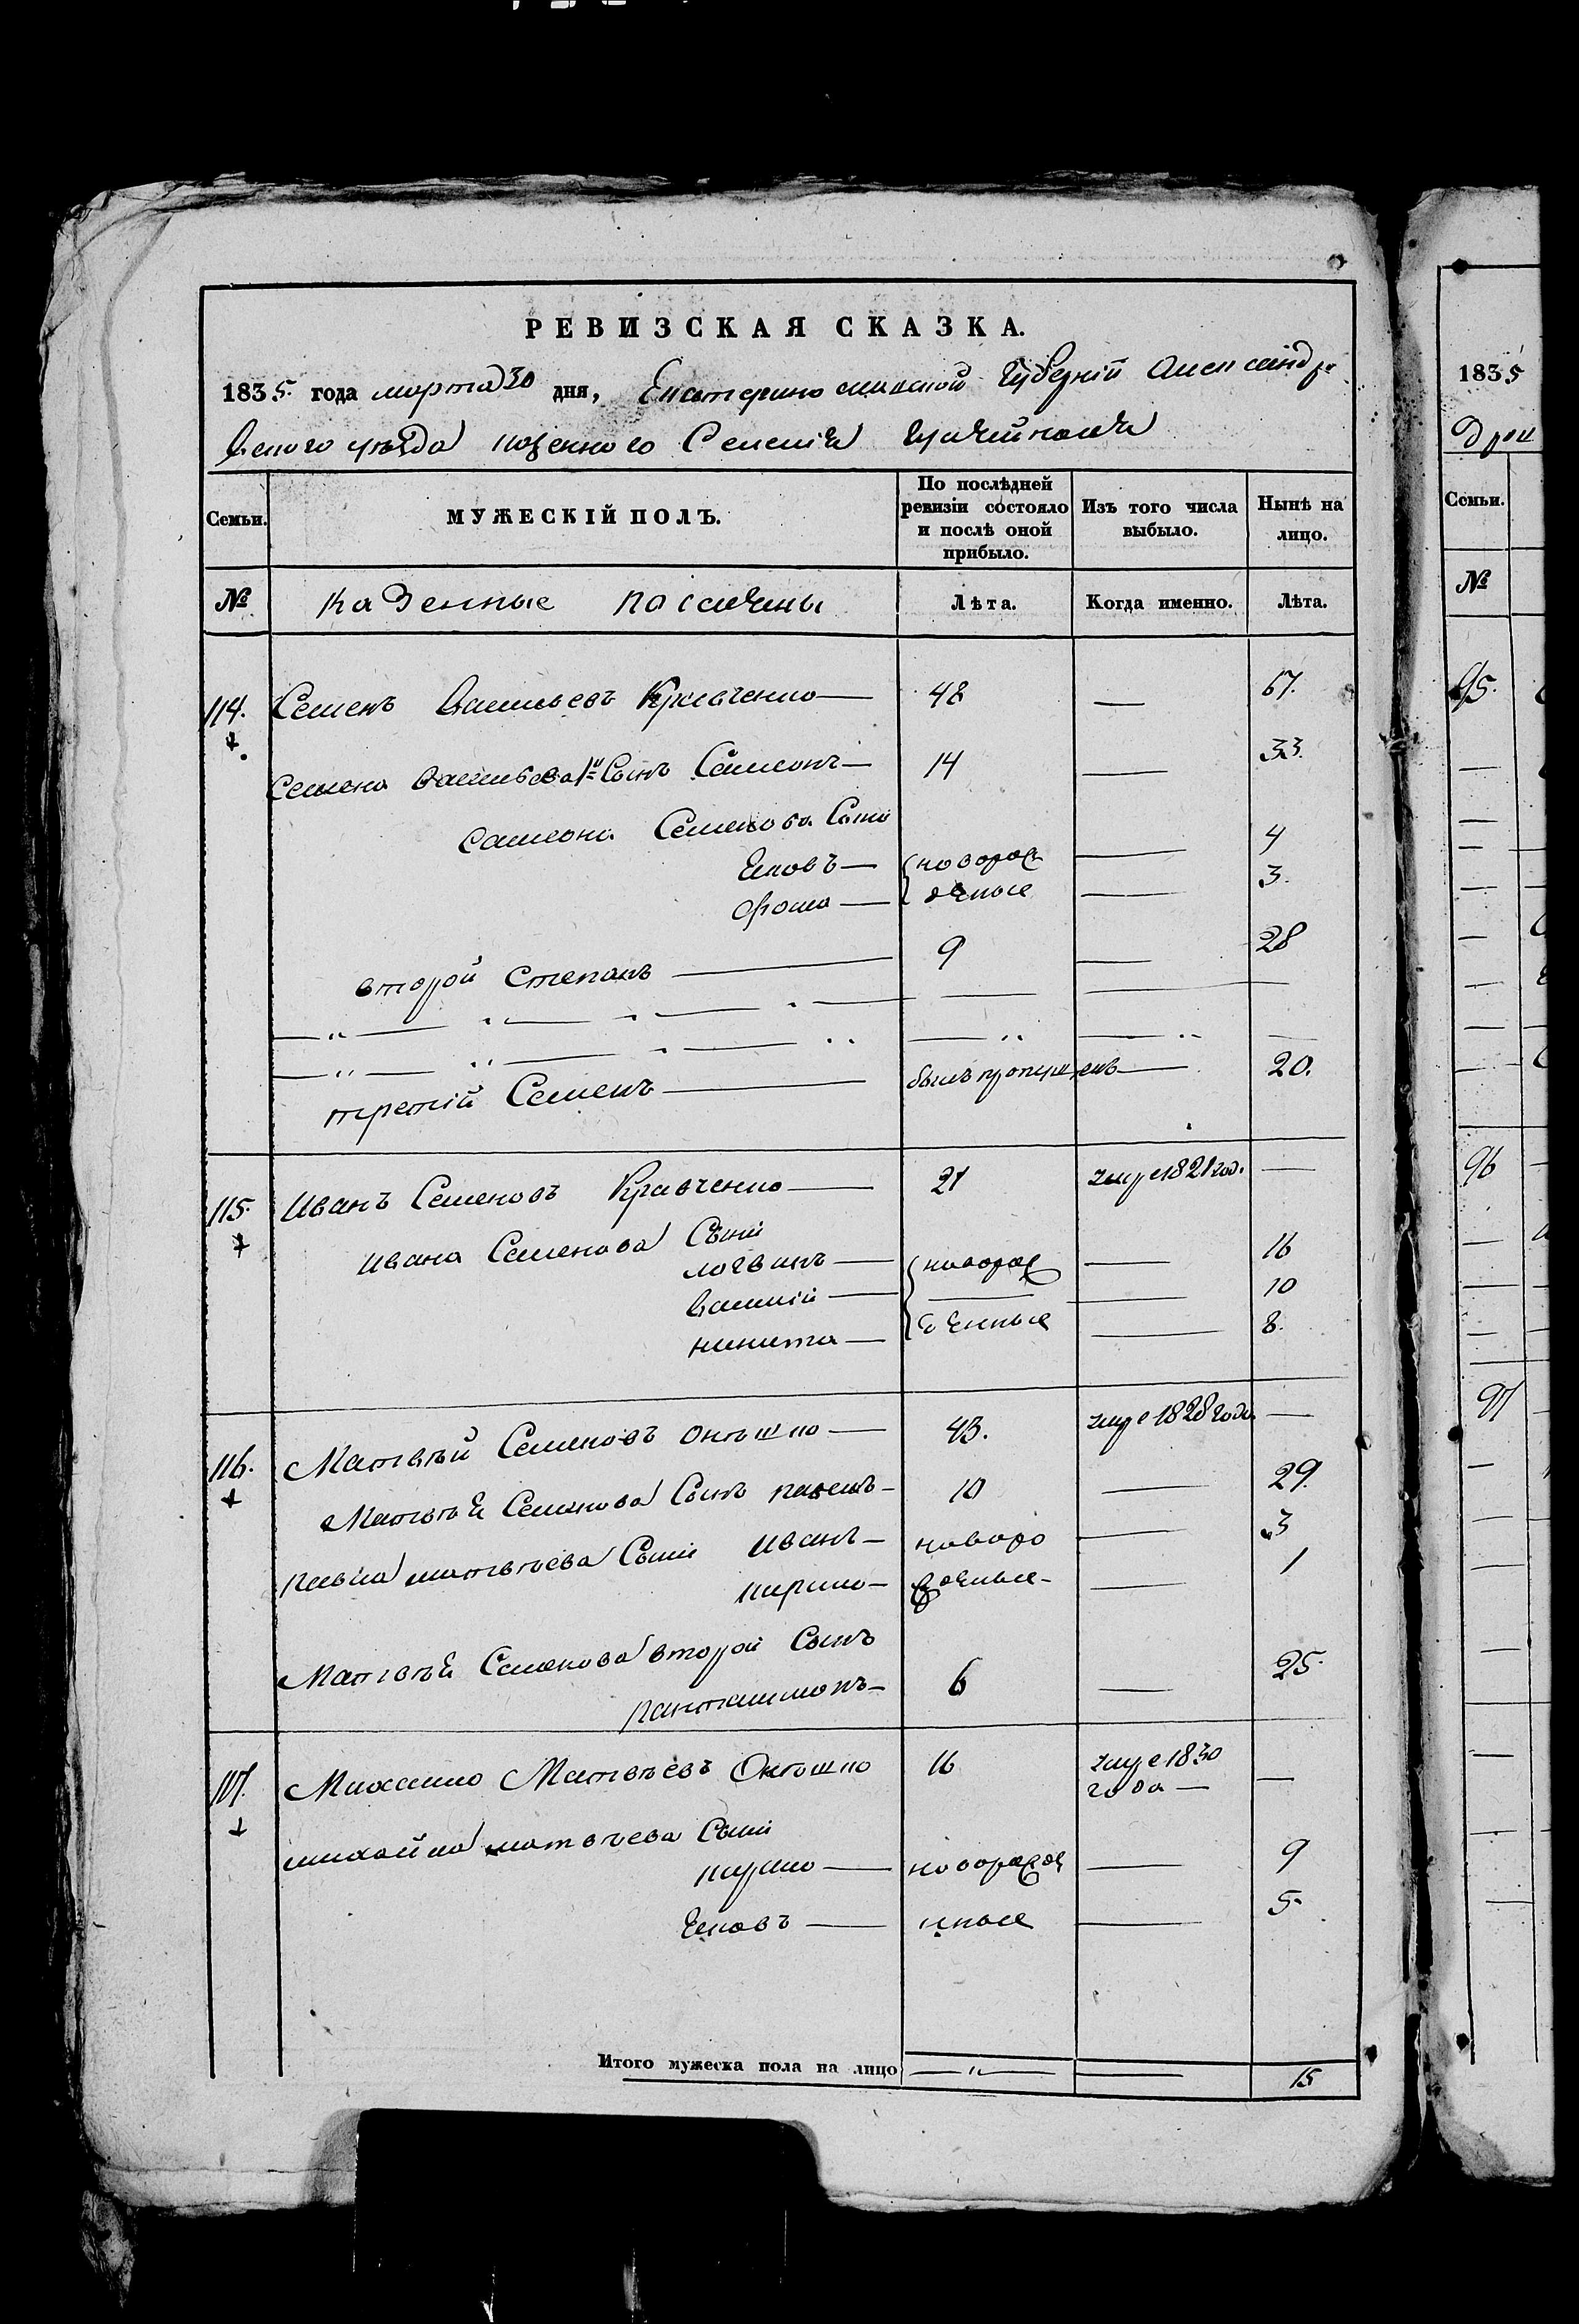 РЕВИЗСКАЯ СКАЗКА.
1835. года марта 30 дня, Екатеринославской Губерніи Александро
вскаго уезда казенного Селенія
Семьи.
МУЖЕСКІЙ ПОЛЪ.
По послѣдней ревизіи состояло и послѣ оной прибыло.
Изъ того числа выбыло.
Нынѣ на лицо.
№ казенные поселяны Лѣта. Когда именно. Лѣта.
114. Семенъ Васильевъ Кравченко — 48 — 67.
Семена Васильева 1й Сынъ Самсонъ — 14 — 33.
Самсона Семенова Сыны
Яковъ — новорож — 4
Фома — денные — 3.
второй Степанъ — 9 — 28
третій Семенъ — былъ пропущенъ — 20.
115. Иванъ Семеновъ Кравченко — 21 умре 1821 год. —
Ивана Семенова Сыны
Логвинъ — новорож — 16
Василій — — 10
Никита — денные — 8.
116. Матвѣй Семеновъ Онышко — 43. умре 1828 года —
Матвѣя Семенова Сынъ Павелъ — 10 — 29.
Павла Матвѣева Сыны Иванъ — новоро — 3
Кирило — жденные — — 1
Матвѣя Семенова второй Сынъ
Пантилимонъ — 6 — 25.
117. Михайло Матвѣевъ Онышко 16 умре 1830 года — —
Михайла Матвѣева Сыны
Кирило — новорожде — 9
Яковъ — нные — 5.
Итого мужеска пола на лицо — „ — — 15
1835
Семьи.
№
95.
96
97